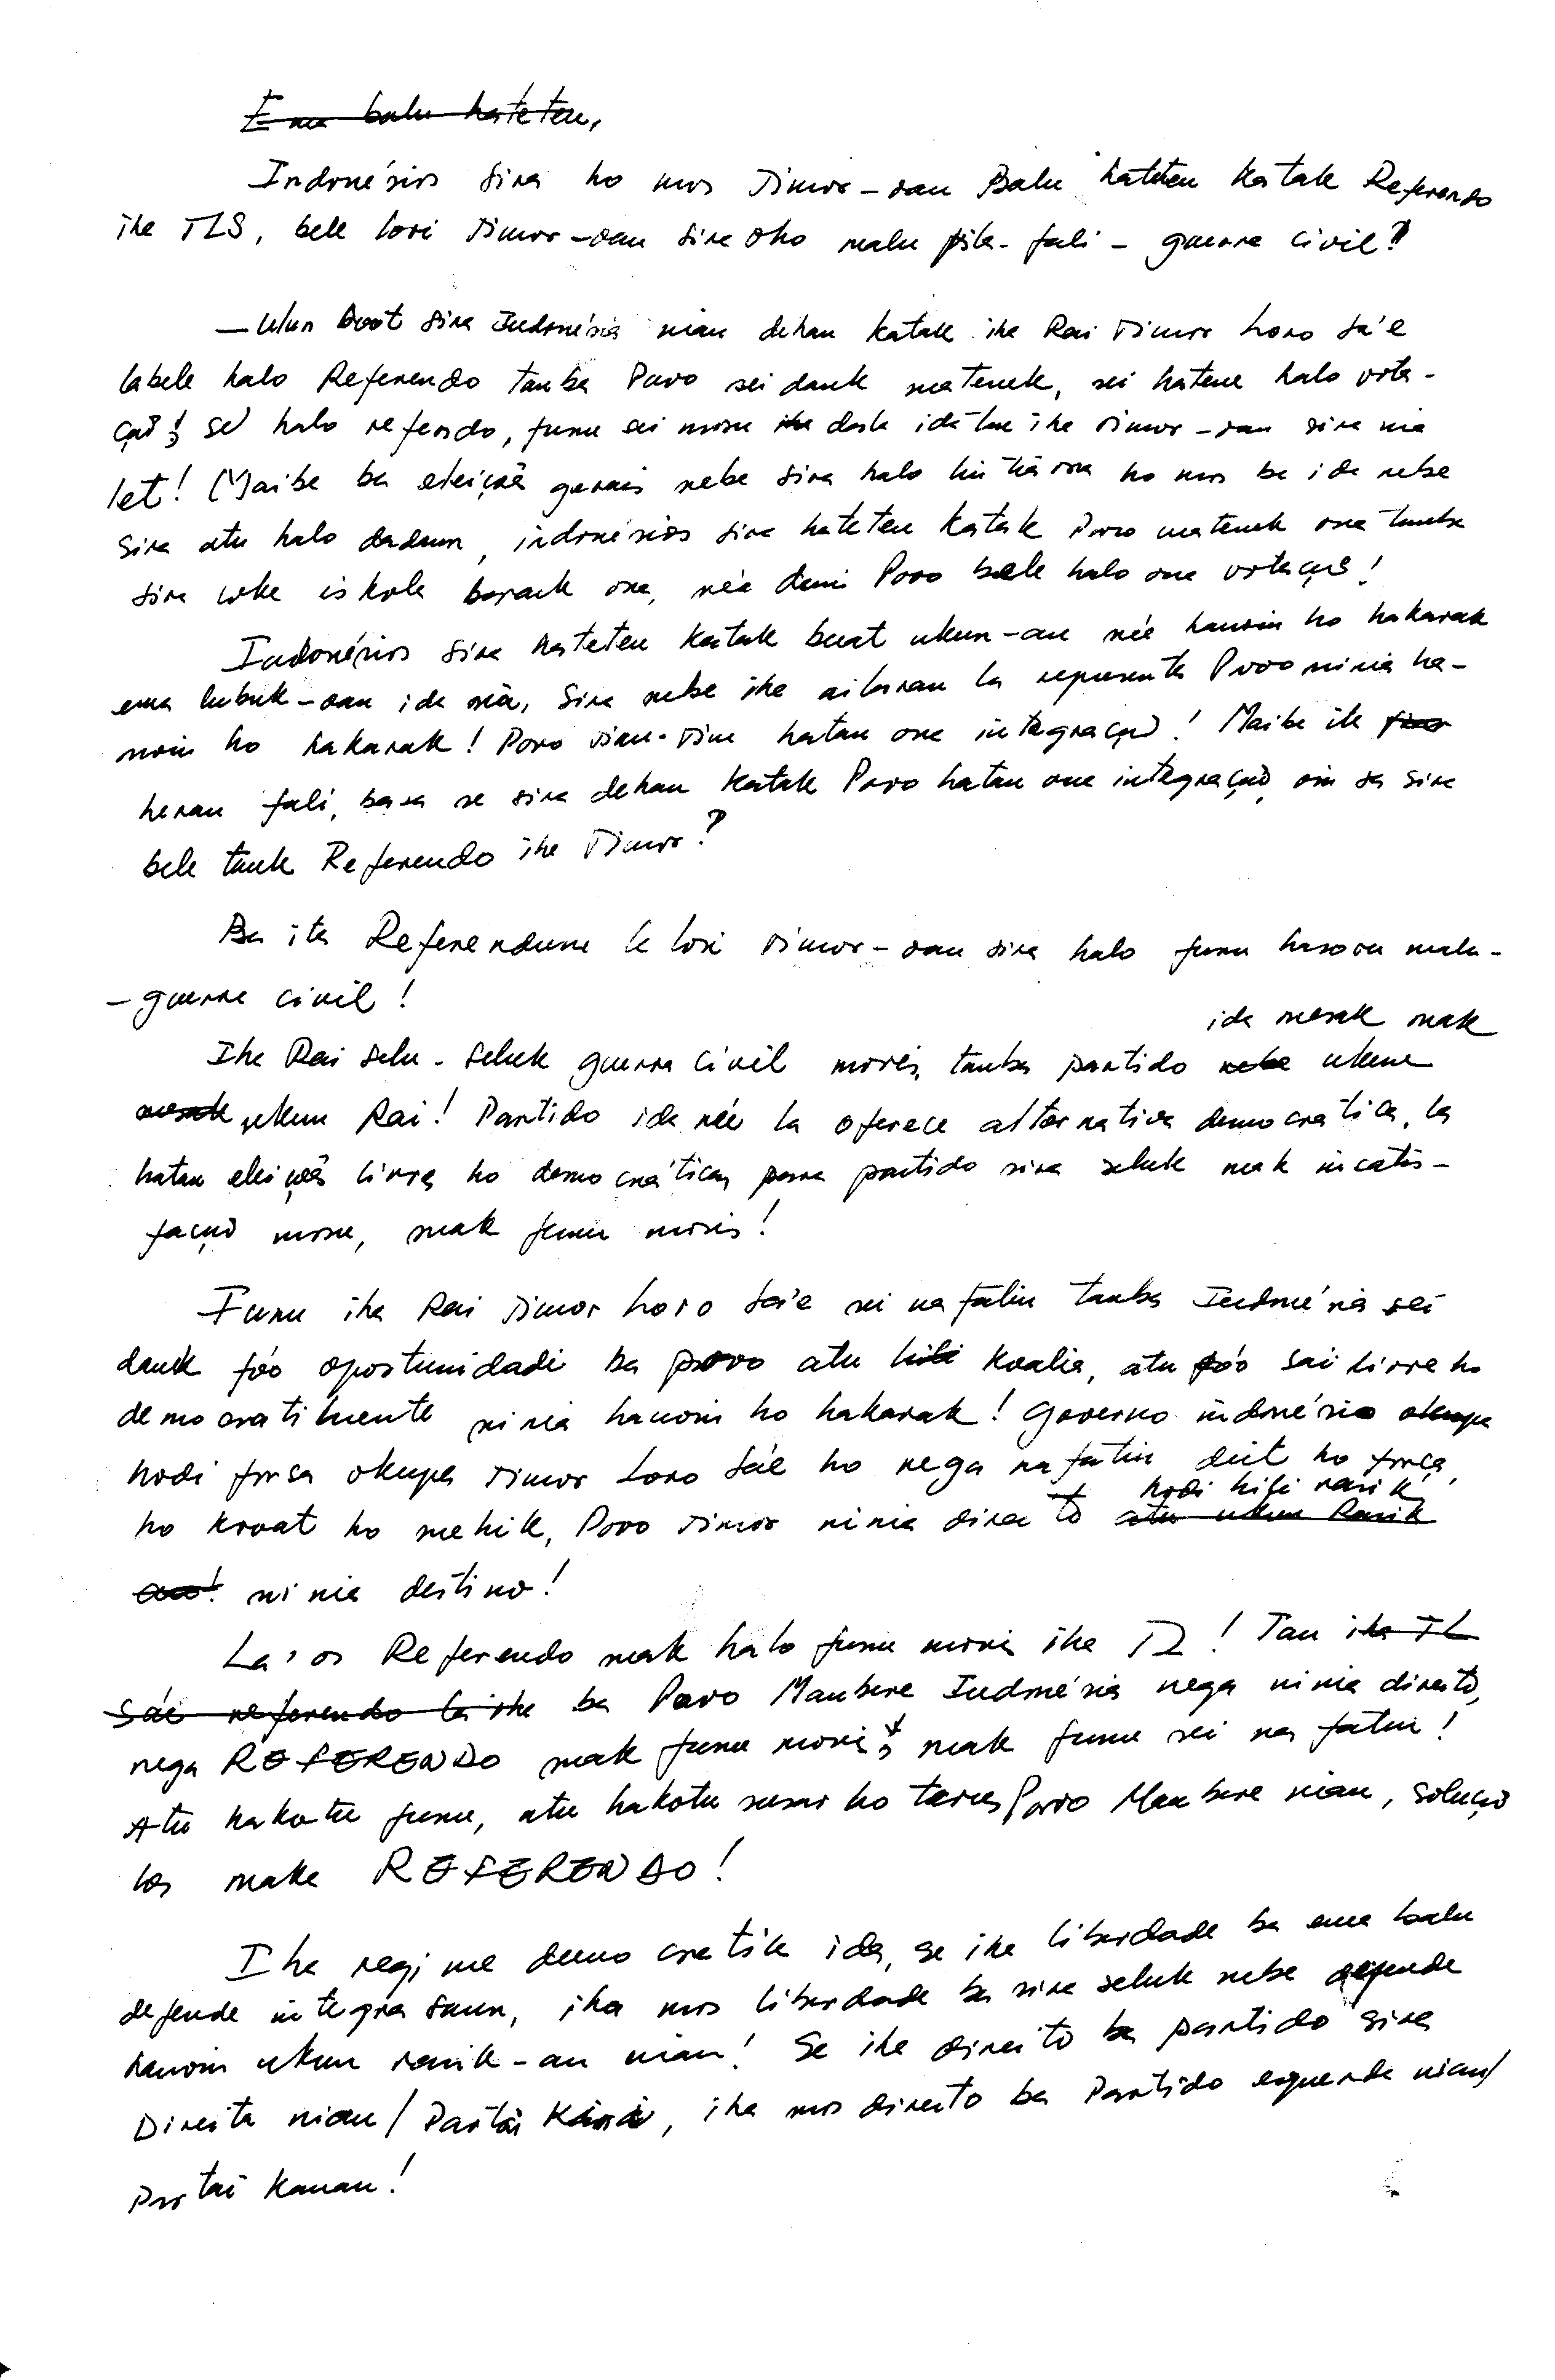 Ema balu hateten,
Indonésios sira ho mos Timor-oan Balu hateten katak Referendo
iha TLS, bele lori Timor-oan sira oho malu pila-fali - guerra civil?
- Ukun Boot sira Indonésia nian dehan katak iha Rai Timor Loro Sa'e
labele halo Referendo tanba Povo sei dauk matenek, sei hatene halo vota-
çaõ! se halo refendo, funu sei mosu iha dala ida tan iha Timor-oan sira nia
let! Maibe ba eleiçoẽs gerais nebe sira halo liu tiha ona ho mos ba ida nebe
sira atu halo dadaun, indonésios sira hateten katak Povo matenek ona tanba
sira loke iskola barack ona, né'e duni Povo bele halo ona votaçaõ!
Indonésios sira hateten katak buat ukun-an né'e hanoin ho hakarak
ema lubuk-oan ida nia, sira nebe iha ailaran la representa Povo ninia ha-
noin ho hakarak! Povo Tim-Tim hatan ona integraçaõ! Maibe ita
heran fali, basa se sira dehan katak Povo hatan ona integraçaõ, oin sa sira
bele tauk Referendo iha Timor?
Ba ita Referendum la lori Timor-oan sira halo funu hasoru malu-
- guerra civil!
ida mesak mak
Iha Rai Selu-Seluk guerra civil moris, tanba partido nebe ukun
mesak ukun Rai! Partido ida né'e la oferece alternativa democratica, la
hatan eleiçoẽs livres ho democráticas para partido sira seluk mak incatis-
façaõ mosu, mak funu moris!
Funu iha Rai Timor Loro Sa'e sei nafatin tanba Indonésia sei
dauk fó'o oportunidadi ba povo atu hili koalia, atu fó'o sai livre ho
democratikmente ninia hanoin ho hakarak! Governo indonésio okupa
hodi forsa okupa Timor Loro Sáe ho nega nafatin deit ho força,
hodi hili rasik
ho kroat ho mehik, Povo Timor ninia direito atu ukun Rasik
an! ninia destino!
La'os Referendo mak halo funu moris iha TL! Tan iha TL
Sáe referendo la iha ba Povo Maubere Indonésia nega ninia direito,
nega REFERENDO mak funu moris, mak funu sei nafatin!
Atu hakotu funu, atu hakotu susar ho terus Povo Maubere nian, soluçaõ
los maka REFERENDO!
Iha regime democratiku ida, se iha liberdade ba ema balu
defende integrasaun, iha mos liberdade ba sira seluk nebe defende
hanoin ukun rasik-an nian! Se iha direito ba partido sira
Direita nian/Partai Kiri, iha mos direito ba Partido esquerda nian/
Partai Kanan!